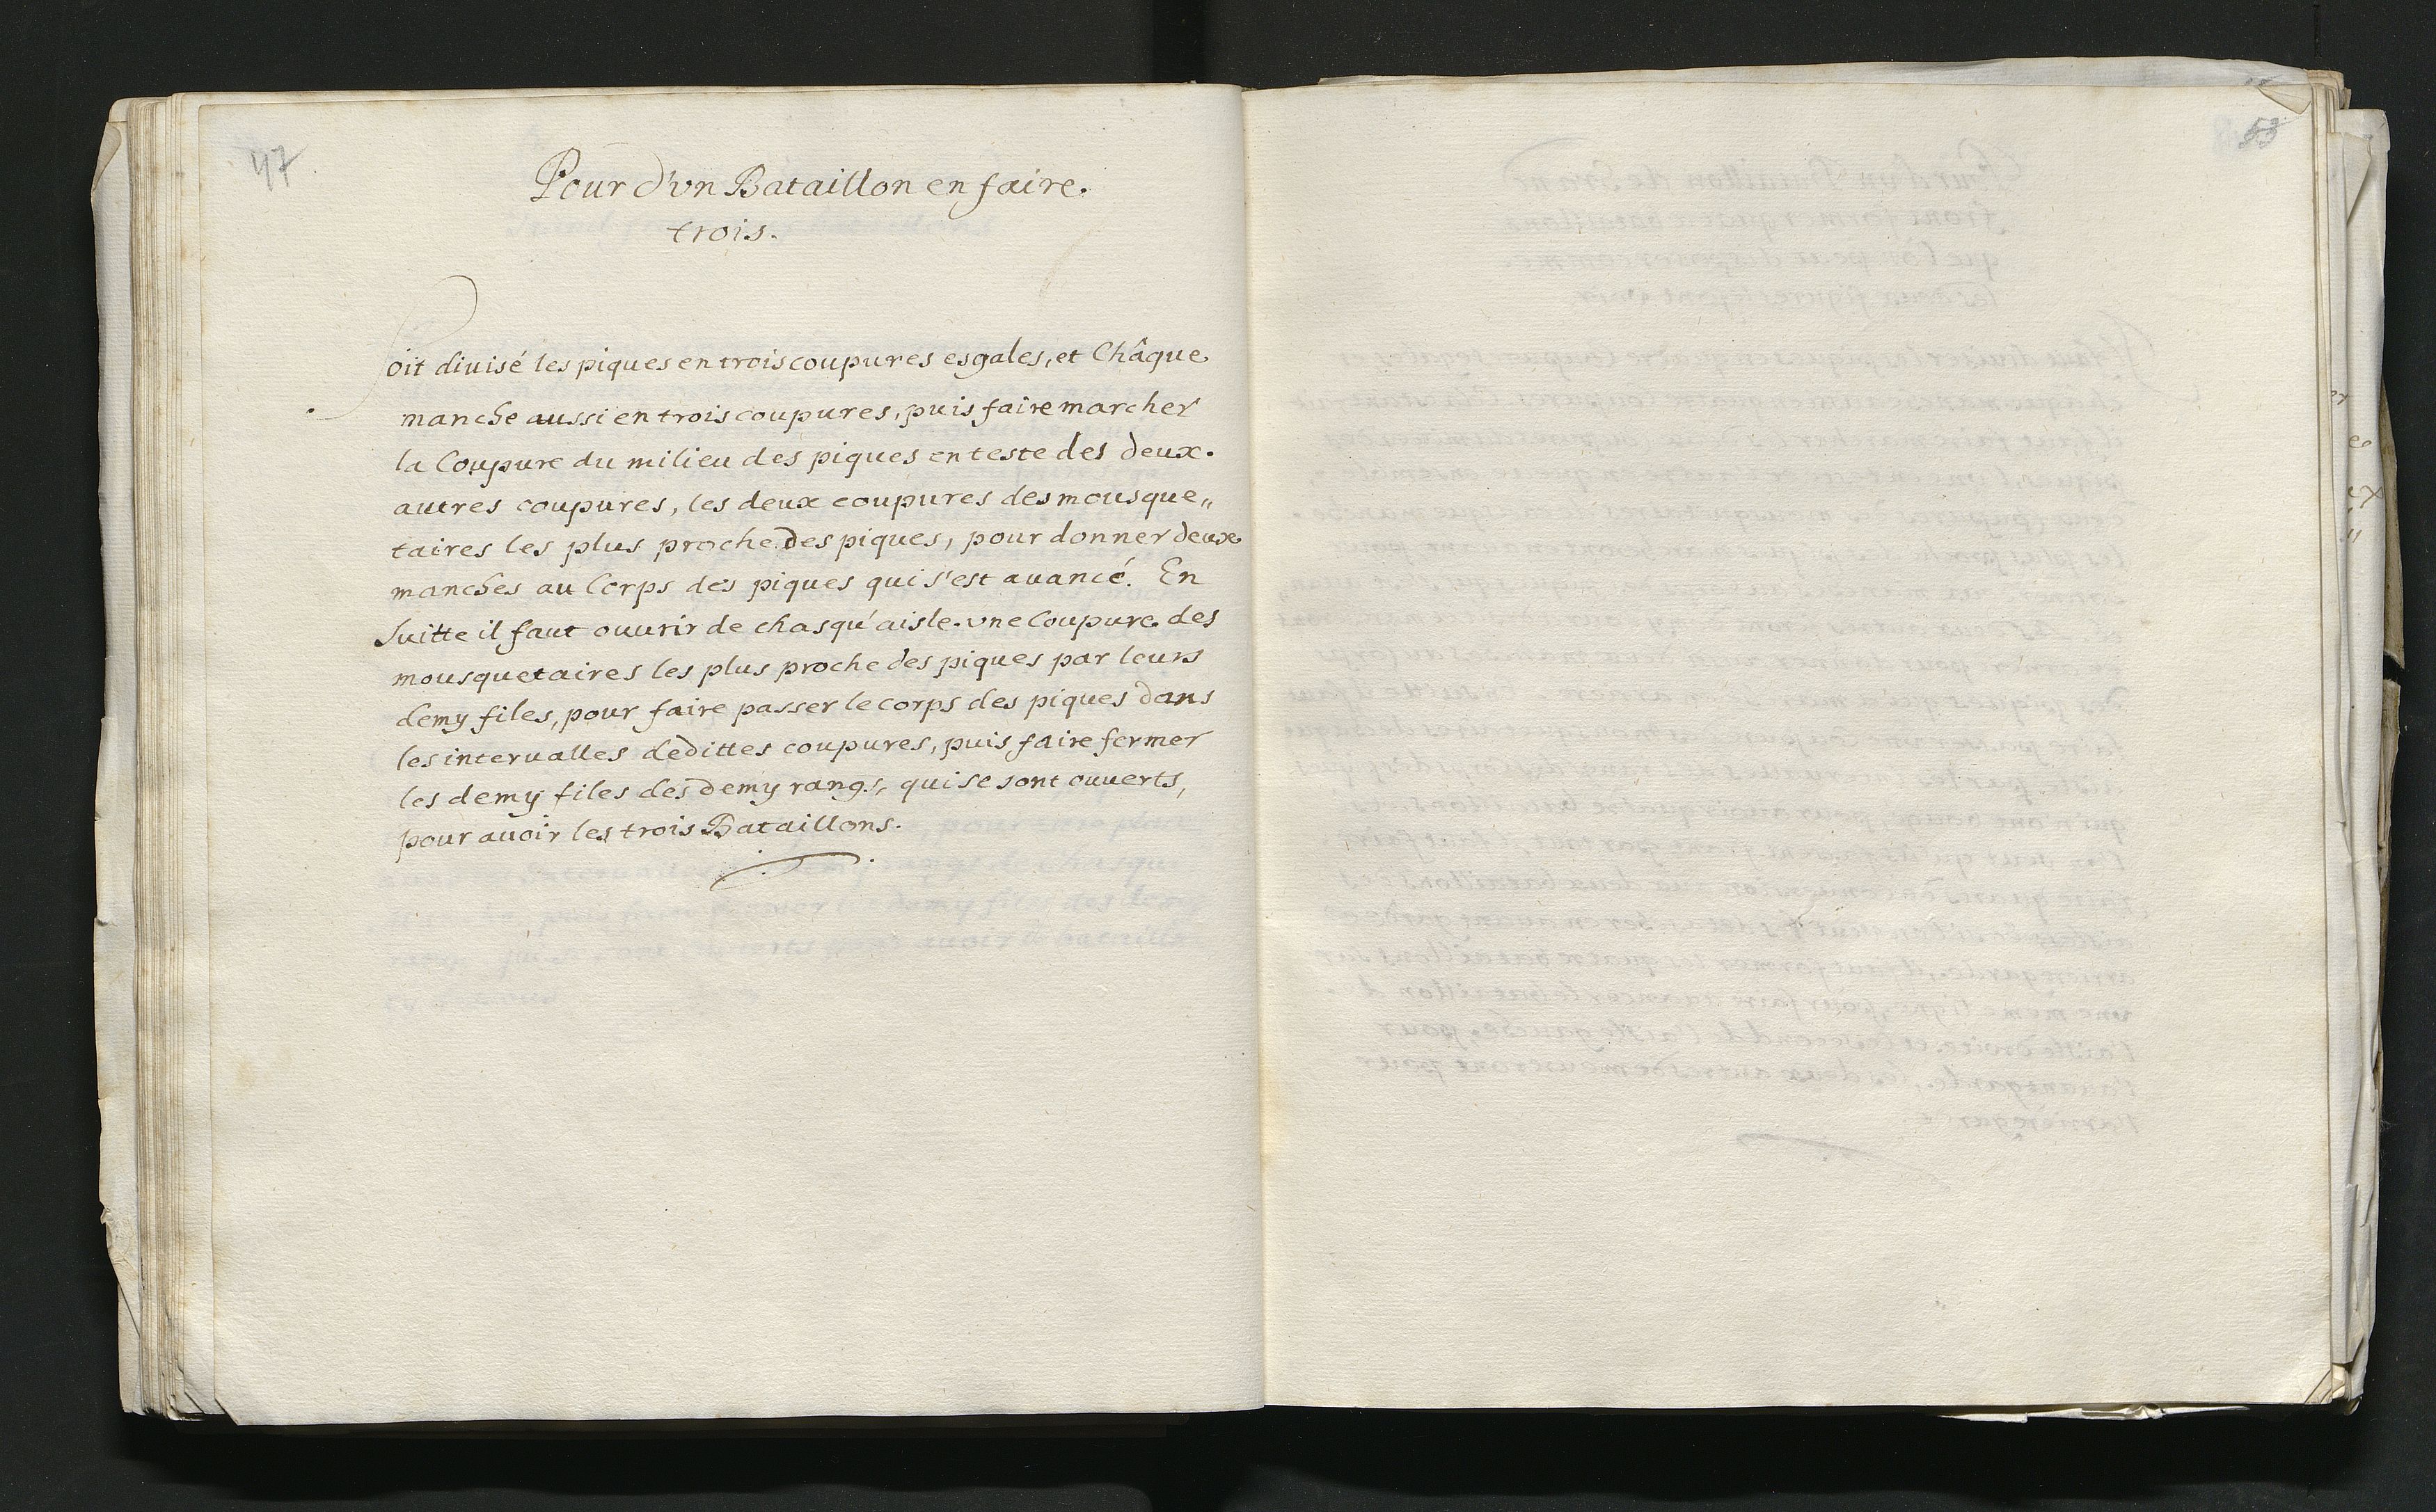 47
Pour d'vn Bataillon en faire
trois.
Soit diuisé les piques en trois coupures esgales, et Châque
manche aussi en trois coupures, puis faire marcher
la Coupure du milieu des piques en teste des deux
autres coupures, les deux coupures des mousque„
taires les plus proche des piques, pour donner deux
manches au Corps des piques qui s'est auancé. En
Suitte il faut ouurir de chasqu'aisle vne Coupure des
mousquetaires les plus proche des piques par leurs
demy files, pour faire passer le corps des piques dans
les interualles deдittes coupures, puis faire fermer
les demy files des demy rangs, qui se sont ouuerts,
pour auoir les trois Bataillons.
53